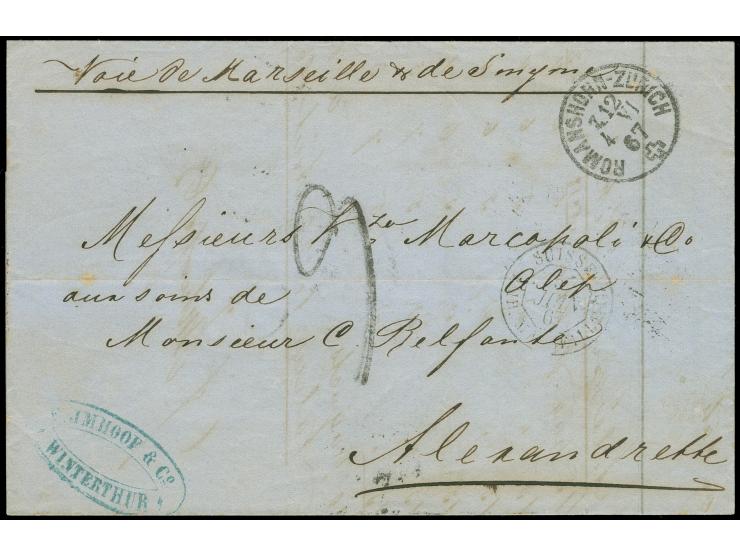 Voie de Marseille & de Smyrne
ROMANSHORN-ZÜRICH
Z.12
4 VI
67
Messieurs Vzo Marcopoli & Co
SUISSE
Alep
aux soins de
JUIN
67
Monsieur C. Belfante
IMHOOF & Co
WINTERTHUR
Alexandrette